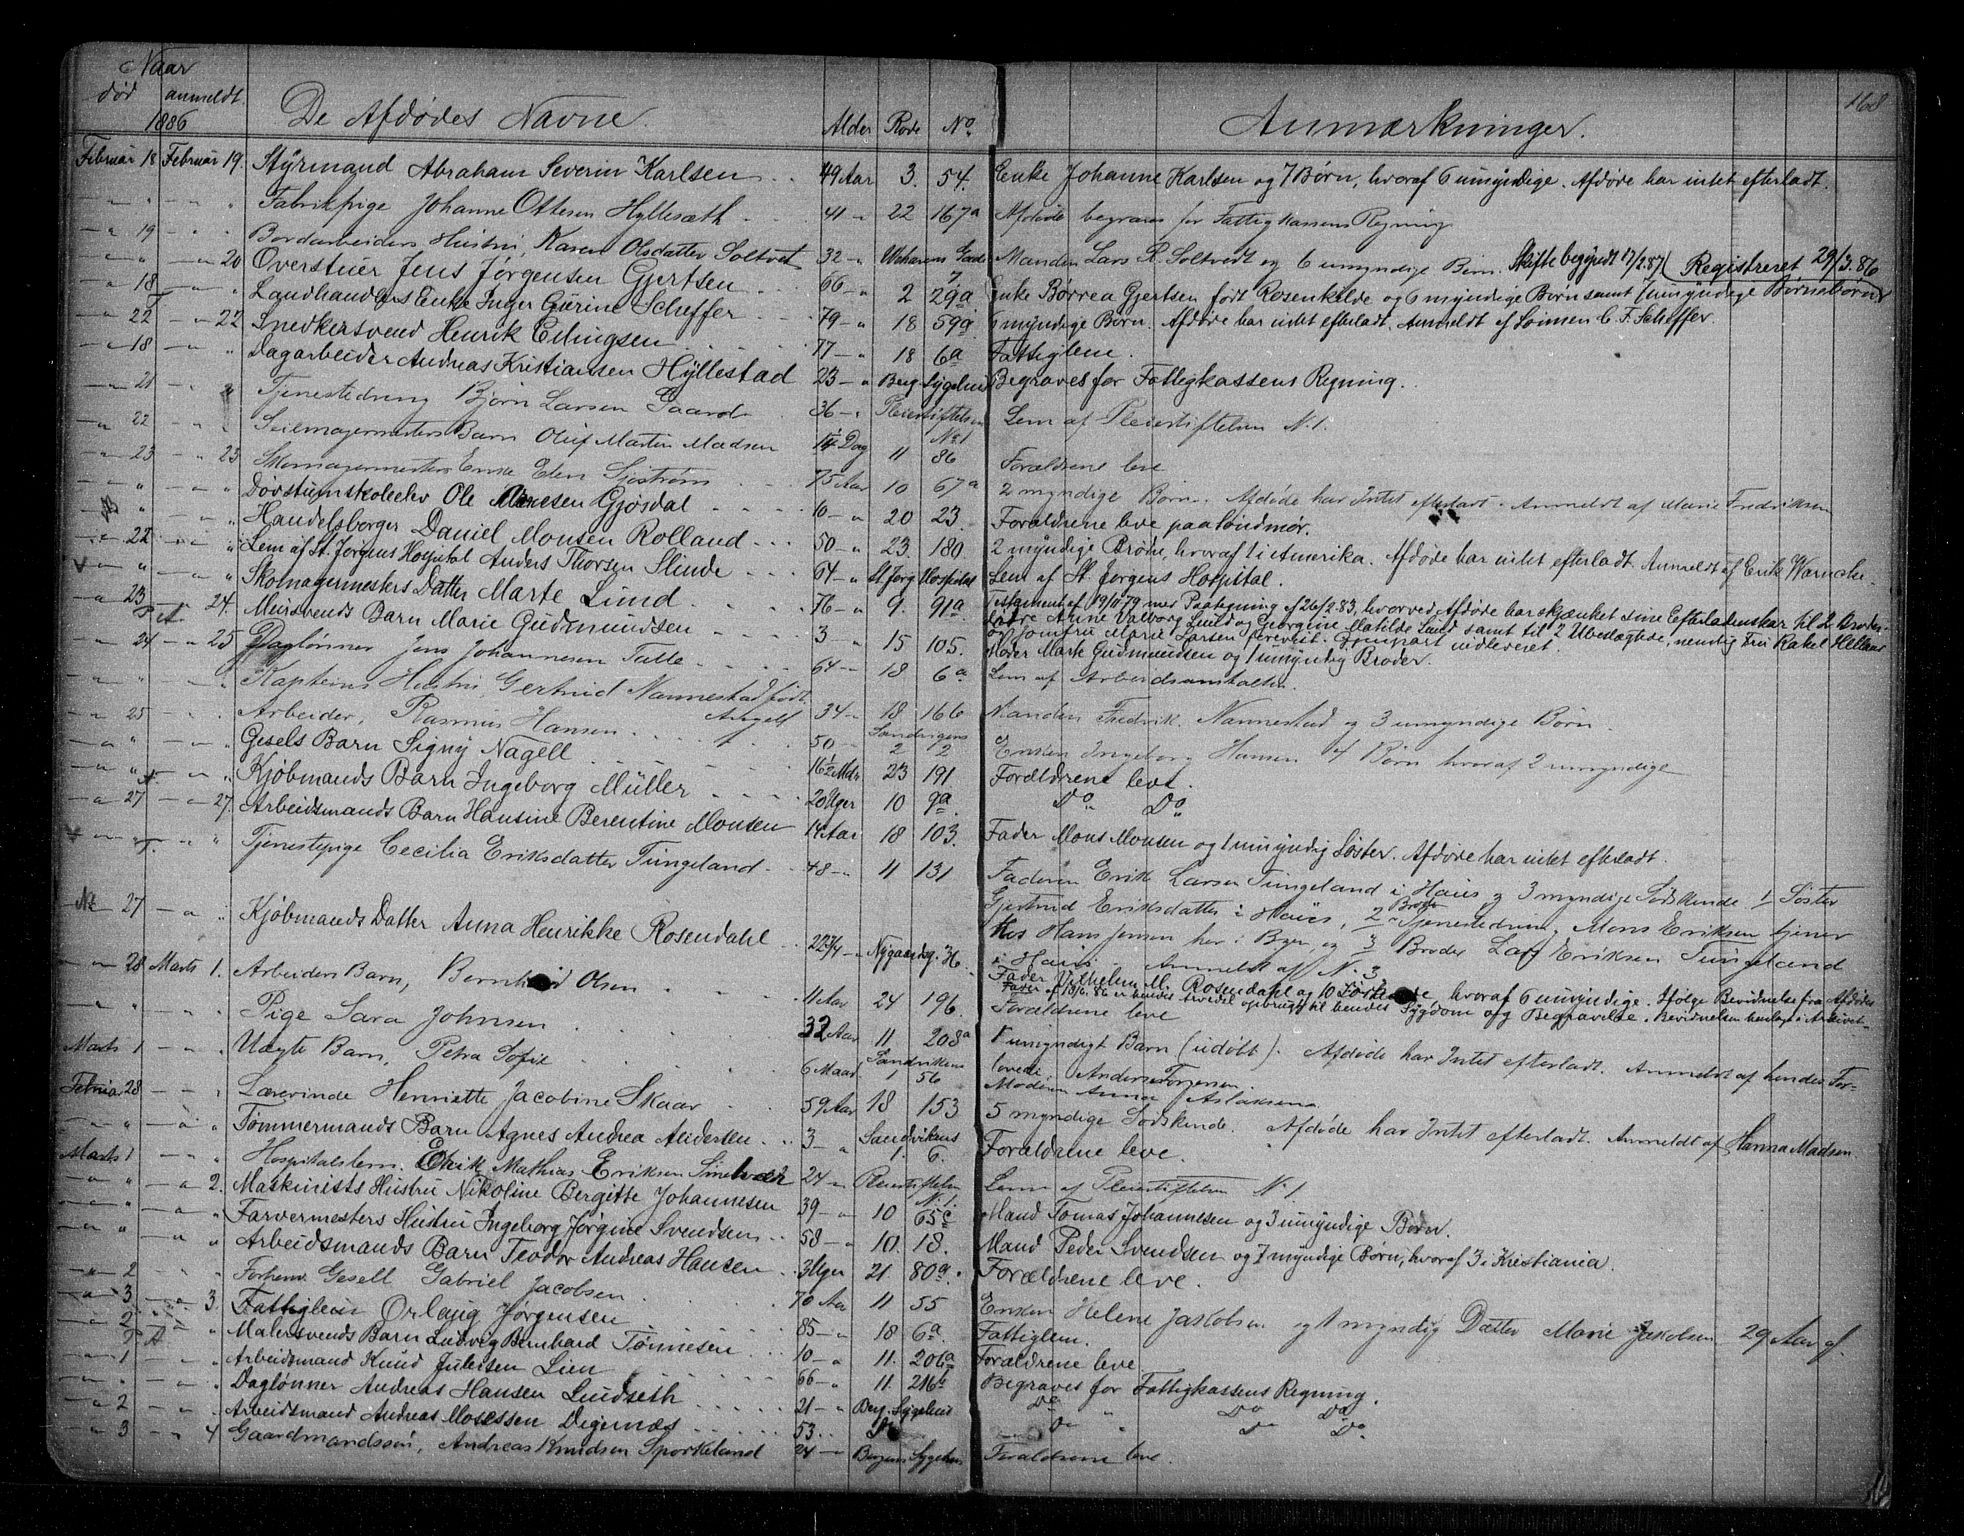 Naar
død anmeldt
1886
De Afdødes Navne.
Alder Rode No
Anmærkninger.
168
Februar 18 Februar 19. Styrmand Abraham Severin Karlsen 49 Aar 3. 54. Enke Johanne Karlsen og 7 Børn, hvoraf 6 umyndige. Afdøde har intet efterladt.
Fabrikpige Johanne Ottesen Hyllesæth 41 22 167a Afdøde begraves for Fattigkassens Regning
19 Bordarbeiders Hustru, Karen Olsdatter Soltvet 32 Manden Lars R. Soltvedt og 6 umyndige Børn. Skifte begyndt 17/2.87 (Registreret 29/3.86
20 Overstuer Jens Jørgensen Gjertsen 66 2 29a Enke Borrea Gjertsen født Rosenkilde og 6 myndige Børn samt 1 umyndige Børnebørn
18 Landhandlers Enke Inger Gurine Scheffer 79 18 59a 6 myndige Børn. Afdøde har intet efterladt. Anmeldt af Sønnen C. F. Scheffer.
22 22 Snedkersvend Henrik Ellingsen 77 18 6a Fattiglem.
18 Dagarbeider Andreas Kristiansen Hyllestad 23 Berg. Sygehus Begraves for Fattigkassens Regning.
21 Tjenestedreng Bjørn Larsen Gaard 36 Pleiestiftelsen No 1 Lem af Pleiestiftelsen N. 1.
22 Seilmagermesters Barn Oluf Martin Madsen 14 Dag 11 86 Forældrene leve
23 23 Skomagermesters Enke Elen Sjøstrøm 75 Aar 10 67a 2 myndige Børn. Afdøde har Intet efterladt. Anmeldt af Marie Fredriksen
Døvstumskoleelev Ole Gjøsdal 16 20 23. Forældrene leve paa Søndmør.
Handelsborger Daniel Monsen Rolland 50 23. 180. 2 myndige Brødre, hvoraf 1 i Amerika. Afdøde har intet efterladt. Anmeldt af Erik Warncke.
22 Lem af St. Jørgens Hospital Anders Thorsen Slinde 64 St Jørg. Hospital Lem af St. Jørgens Hospital.
Skomagermesters Datter Marte Lund 76 9. 91a Testament af 19/11 79 med Paategning af 26/2.83, hvorved Afdøde har skjænket sine Efterladenskar til 2 Broder-
døtre Anne Valborg Lund og Georgine Matilde Lund samt til 2 Ubeslægtede, nemlig Fru Rakel Helland
og Jomfru Marie Larsen Grevest. Gjenpart indleveret.
23 24. Mursvends Barn Marie Gudmundsen 3 15 105. Moder Marte Gudmundsen og 1 umyndig Broder.
24 25 Daglønner Jens Johannesen Tulle 64 18 6a Lem af Arbeidsanstalten.
Kapteins Hustru Gertrud Nannestad født Angell 34 18 166 Manden Fredrik Nannestad og 3 umyndige Børn
25 Arbeider, Rasmus Hansen 50 Sandvigens 2 2 Enken Ingeborg Hansen 4 Børn hvoraf 2 umyndige
Gesels Barn Signy Nagell 16½ Mdr 23 191 Forældrene leve.
Kjøbmands Barn Ingeborg Müller 20 Uger 10 9a Do Do
27 27. Arbeidsmands Barn Hansine Berentine Monsen 14 Aar 18 103. Fader Mons Monsen og 1 umyndig Søster. Afdøde har intet efterladt.
Tjenestepige Cecilia Eriksdatter Tungeland 48 11 131 Faderen Erik Larsen Tungeland i Haus og 3 myndige Sødskende 1/ Søster
Gjertrud Eriksdatter i Haus, 2/ Broder Tjenestedreng Mons Eriksen tjener
hos Hans Jensen her i Byen og 3/ Broder Lars Eriksen Tungeland
i Haus. Anmeldt af N. 3
27 Kjøbmands Datter Anna Henrikke Rosendahl 22¾ Nygaardsg. 36 Fader Vilhelm M. Rosendahl og 10 Sødskende, hvoraf 6 umyndige. Ifølge Bevidnelse fra Afdødes
Fader af 10/6. 86 er hendes Arvedel opbrugt til hendes Sygdom og Begravelse. Bevidnelsen henlagt i Arkivet.
28 Marts 1. Arbeiders Barn, Bernhard Olsen 11 Aar 24 196. Forældrene leve
Pige Sara Johnsen 32 Aar 11 208a 1 umyndigt Barn (udøbt). Afdøde har Intet efterladt. Anmeldt af hendes For-
lovede Anders Torjersen.
Marts 1 Uægte Barn, Petra Sofie 6 Maad. Sandvikens 1 56 Moderen Anna Aslaksen
Februar 28 Lærerinde Henriette Jacobine Skaar 59 Aar 18 153 5 myndige Sødskende. Afdøde har Intet efterladt. Anmeldt af Hanna Madsen.
Tømmermands Barn Agnes Andrea Andersen 3 Sandvikens 1. 6. Forældrene leve.
Marts 1 Hospitalslem. Erik Mathias Eriksen 24 Pleiestiftelsen N. 1. Lem af Pleiestiftelsen N 1.
2. Maskinists Hustru Nikoline Bergitte Johannesen 39 10 65c Mand Tomas Johannesen og 3 umyndige Børn.
Farvermesters Hustru Ingeborg Jørgine Svendsen 58 10. 18. Mand Peder Svendsen og 7 myndige Børn, hvoraf 3 i Kristiania.
Arbeidsmands Barn Teodor Andreas Hansen 3 Uger 21. 80a. Forældrene leve.
2 Forhenv. Gesell Gabriel Jacobsen 70 Aar 11 55 Enken Helene Jakobsen og 1 myndig Datter Marie Jakobsen 29 Aar gl.
3 3. Fattiglem Orlaug Jørgensen 85 18 6a. Fattiglem.
2 Malersvends Barn Ludvig Bernhard Tønnesen 10 11. 206a Forældrene leve.
1 Arbeidsmand Knud Julesen Lien 66 11. 216a Begraves for Fattigkassens Regning.
Daglønner Andreas Hansen Lundseth 21 Berg. Sygehus Do Do Do
2 Arbeidsmand Andreas Mosessen Degernæs 53 Do Do
3 4 Gaardmandssøn, Andreas Knudsen Sporkeland 24 Bergens Sygehus Forældrene leve.